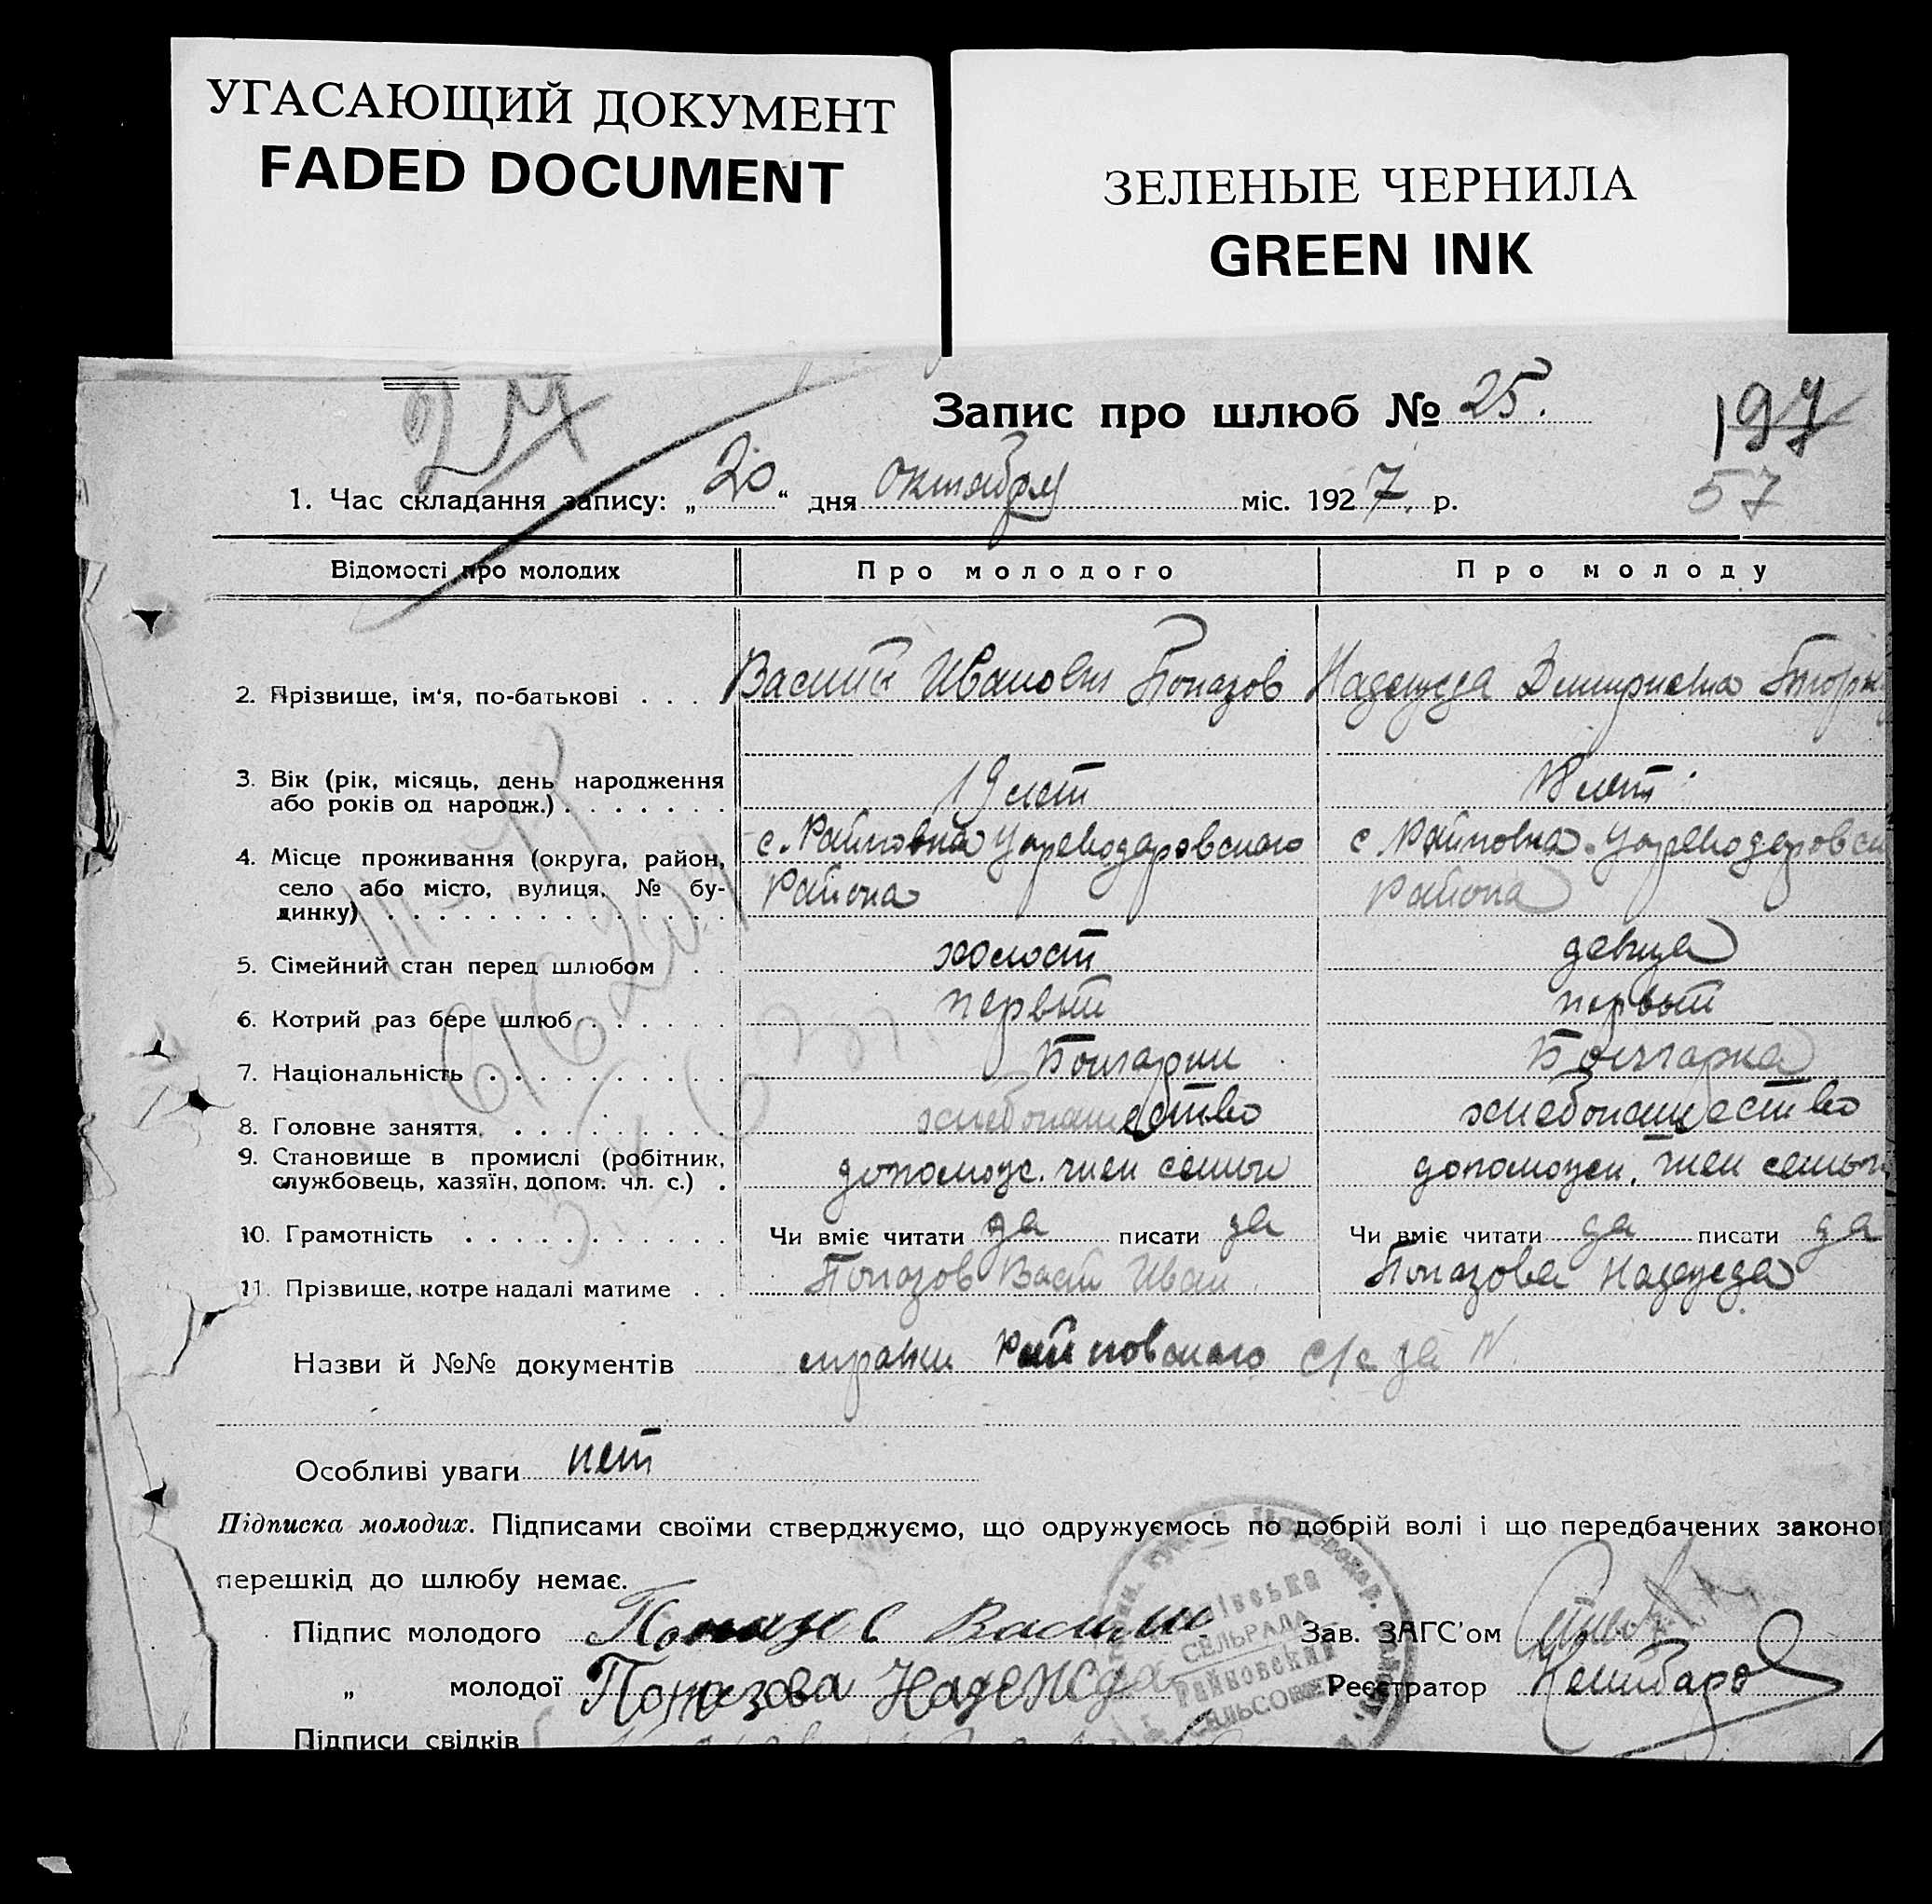 УГАСАЮЩИЙ ДОКУМЕНТ
FADED DOCUMENT
ЗЕЛЕНЫЕ ЧЕРНИЛА
GREEN INK
27
Запис про шлюб № 25.
197
57
1. Час складання запису: „20“ дня октября міс. 1927 р.
Відомості про молодих Про молодого Про молоду
2. Прізвище, ім'я, по-батькові . . . Василий Иванович Попазов Надежда
3. Вік (рік, місяць, день народження
або років од народж.) . . . . . . . 19 лет 18 лет
4. Місце проживання (округа, район, с. Райновка Цареводаровского с Райновка Цареводаровск
село або місто, вулиця, № бу-
динку) . . . . . . . . . . . . . . района района
5. Сімейний стан перед шлюбом . . холост девица
6. Котрий раз бере шлюб . . . . . . первый первый
7. Національність . . . . . . . . . . Болгарин Болгарка
8. Головне заняття . . . . . . . . . хлебопашество хлебопашество
9. Становище в промислі (робітник,
службовець, хазяїн, допом. чл. с.) . допомож. член семьи допоможен. член семьи
10. Грамотність . . . . . . . . . . . Чи вміє читати да писати да Чи вміє читати да писати да
11. Прізвище, котре надалі матиме . . Попазов Васил Иван Попазова Надежда
Назви й №№ документів справки Райновского с/с за N
Особливі уваги нет
Підписка молодих. Підписами своїми стверджуємо, що одружуємось по добрій волі і що передбачених законо
перешкід до шлюбу немає.
Підпис молодого Попазов Васили Зав. ЗАГС'ом
„ молодої Попазова Надежда Реєстратор
СЕЛЬРАДА
Райновский
СЕЛЬСОВЕТ
Підписи свідків